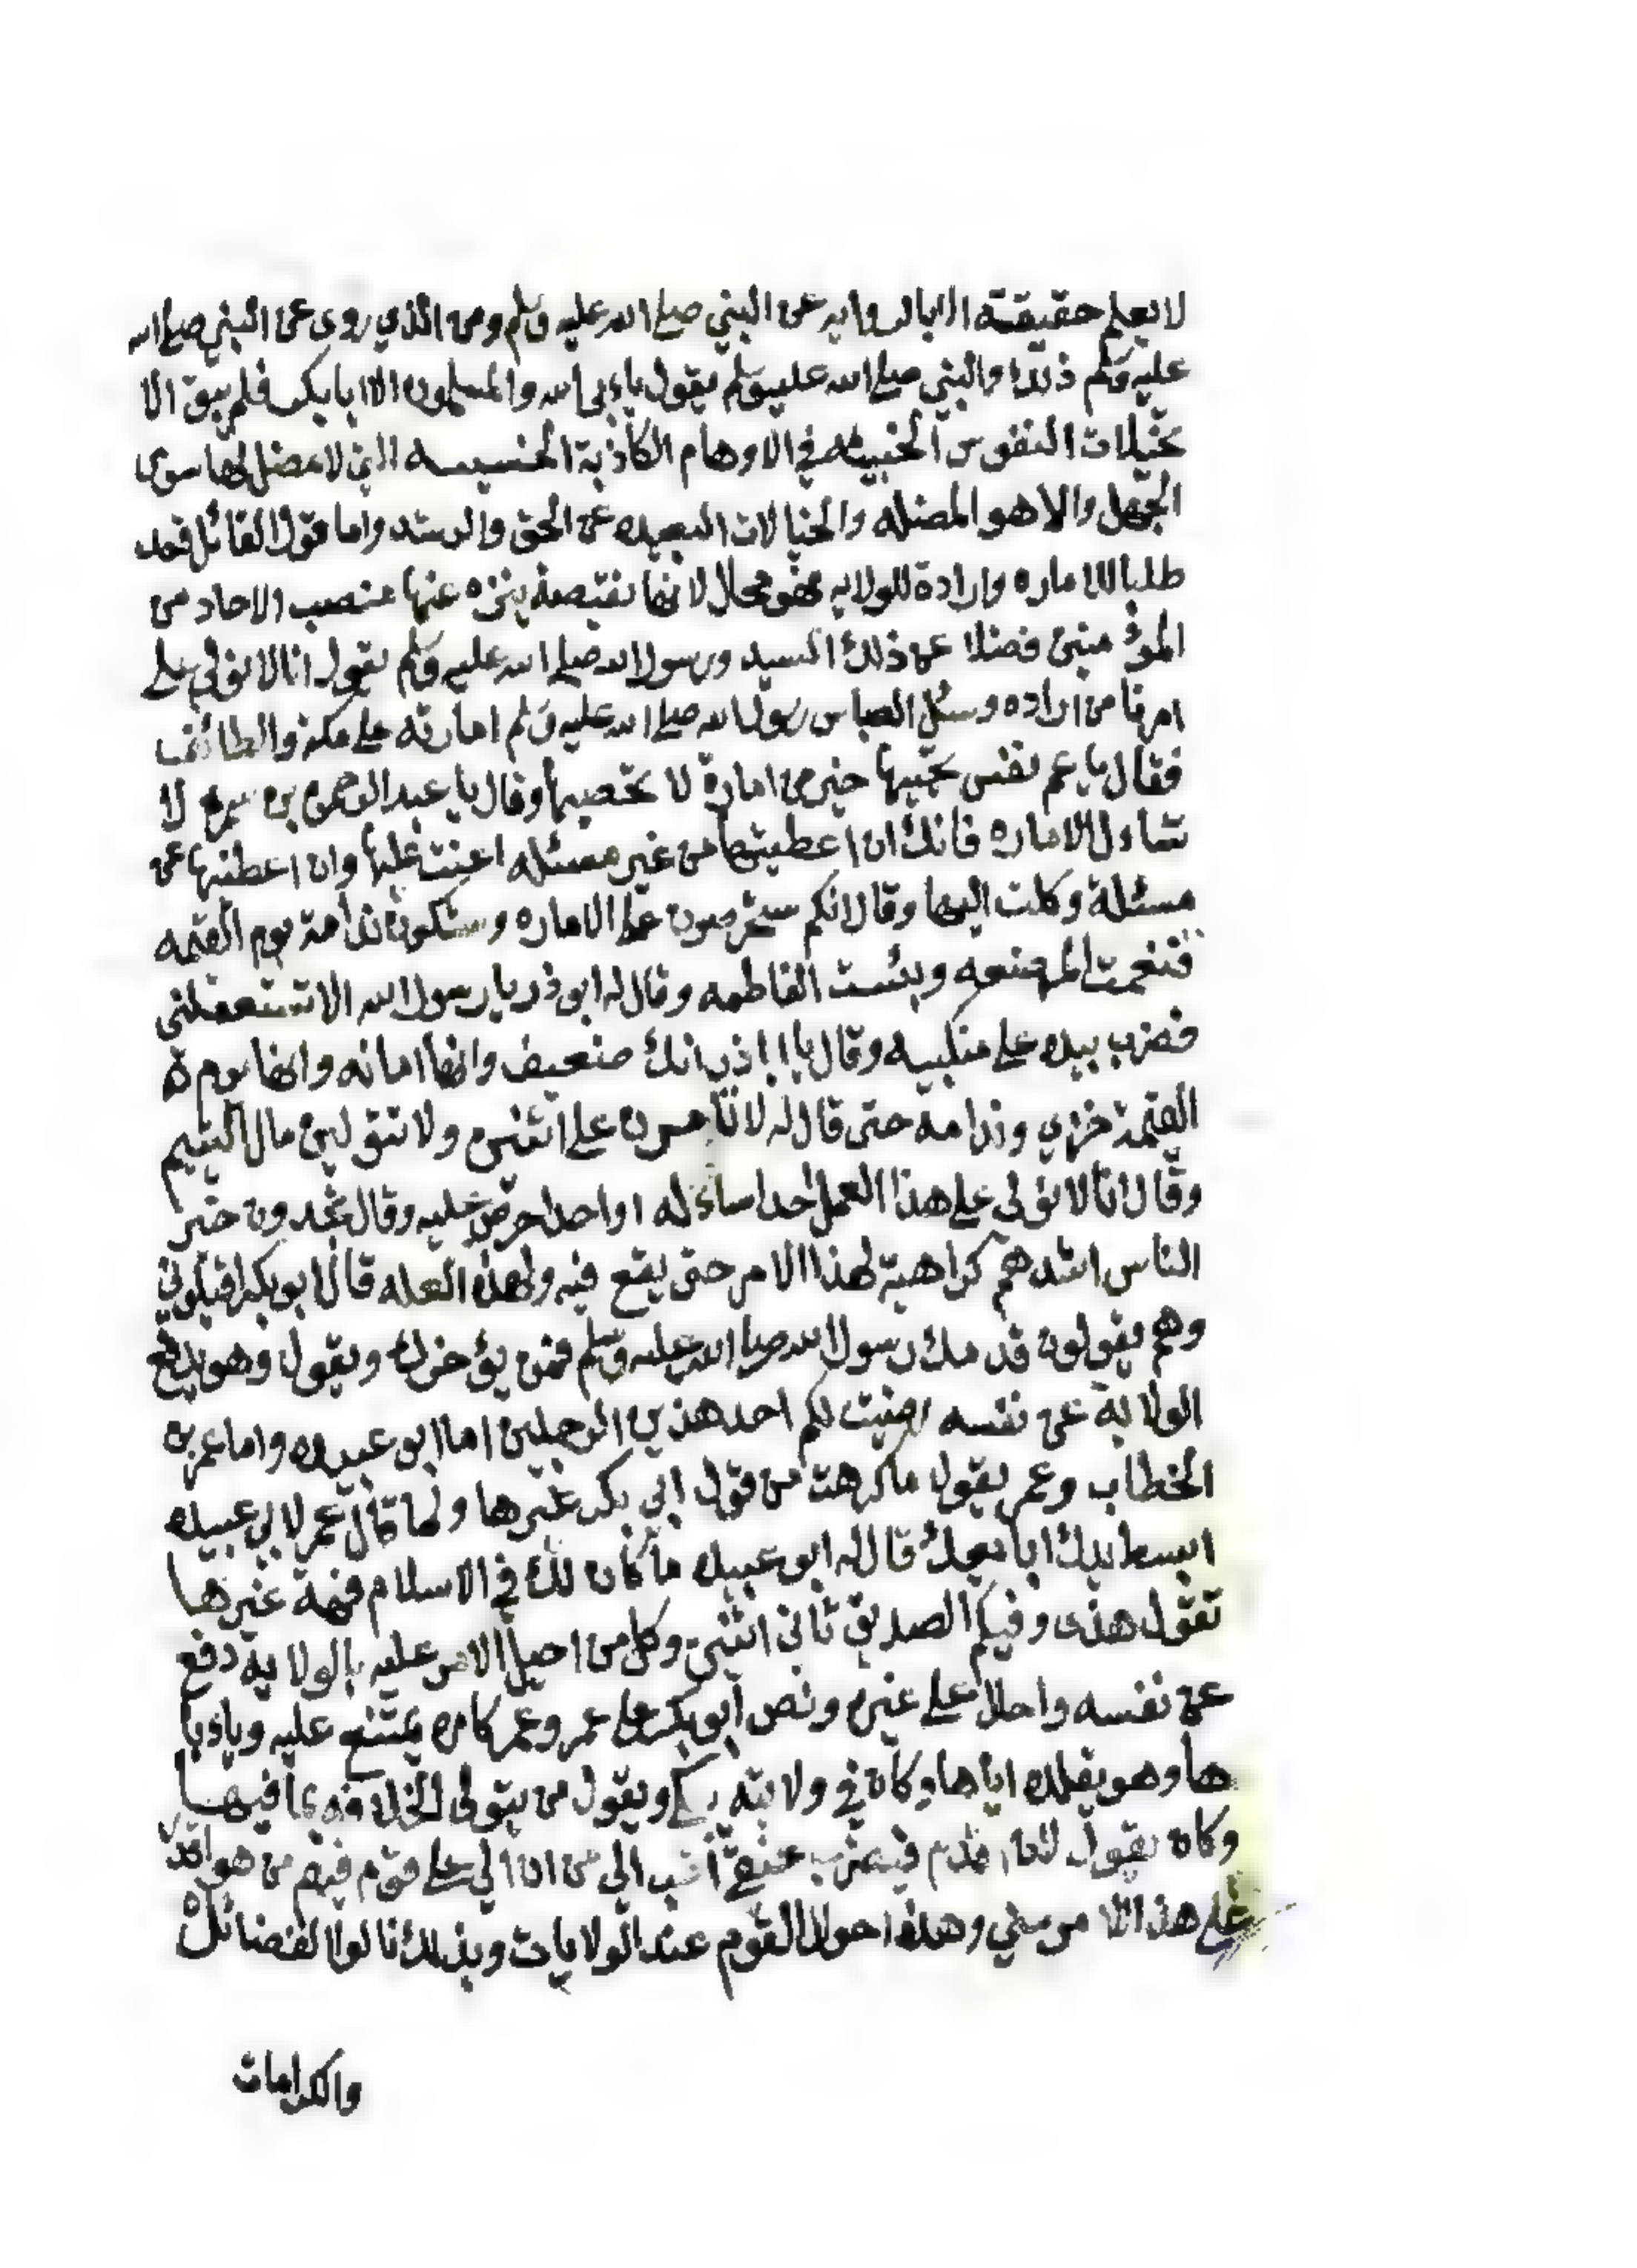 لا يعلم حقيقته الا بالروايه عن النبي صلى الله عليه وسلم ومن الذي روى عن النبي صلى الله
عليه وسلم ذلك والنبي صلى الله عليه وسلم يقول ياءبى الله والمسلمون الا ابا بكر فلم يبق الا
تخيلات النفوس الخبيثه في الاوهام الكاذبة الخسيسه التي لا فضل لها سوى
الجهل والاهو المضله والخيالات البعيده عن الحق والرشد واما قول القائل قعد
طلبا للاماره وارادة للولايه فهو محال لانها نقيصة ينزه عنها منصب الاحاد من
المؤمنين فضلا عن ذلك السيد ورسول الله صلى الله عليه وسلم يقول انا لا نولي على
امرنا من اراده وسئل العباس رسول الله صلى الله عليه وسلم امارته على مكة والطائف
فقال يا عم نفس تحييها خير من امارة لا تحصيها وقال يا عبد الرحمن بن سمره لا
تساءل الاماره فانك ان اعطيتها من غير مسئله اعنت عليها وان اعطيتها عن
مسئلة وكلت اليها وقال انكم ستحرصون على الاماره وستكون ندامة يوم القيمه
فنعمت المرضعه وبئست الفاطمه وقال له ابو ذر يا رسول الله الا تستعملني
فضرب بيده على منكبيه وقال يا ابا ذر انك ضعيف وانها امانه وانها يوم ة
القيمة خزي وندامه حتى قال له لا تتامرن على اثنين ولا تتولين مال اليتيم
وقال انا لا نولي على هذا العمل احدا ساءله او احدا حرص عليه وقال تجدون خير
الناس اشدهم كراهية لهذا الامر حتى يقع فيه ولهذه العله قال ابو بكر اقيلوني
وهم يقولون قدمك رسول الله صلى الله عليه وسلم فمن يؤخرك ويقول وهو يدفع
الولاية عن نفسه رضيت لكم احد هذين الرجلين اما ابو عبيده واما عمر بن
الخطاب وعمر يقول ما كرهت من قول ابي بكر غيرها ولما قال عمر لابي عبيده
ابسط يدك ابايعك قال له ابو عبيده ما كان لك في الاسلام فهة غيرها
تقول هذى وفيكم الصديق ثاني اثنين وكل من احيل الامر عليه بالولاية دفع
عن نفسه واحلا على غيره ونص ابو بكر على عمر وعمر كاره يمتنع عليه وياءبا
ها وهو يقلده اياها وكان في ولايته يبكي ويقول من يتولى الخلافه بما فيها
وكان يقول لئن اقدم فيضرب عنقي احب الي من ان الي على قوم فيهم من هو اقدر
على هذا الامر مني وهذه احول القوم عند الولايات وبذلك نالوا الفضائل
والكرامات